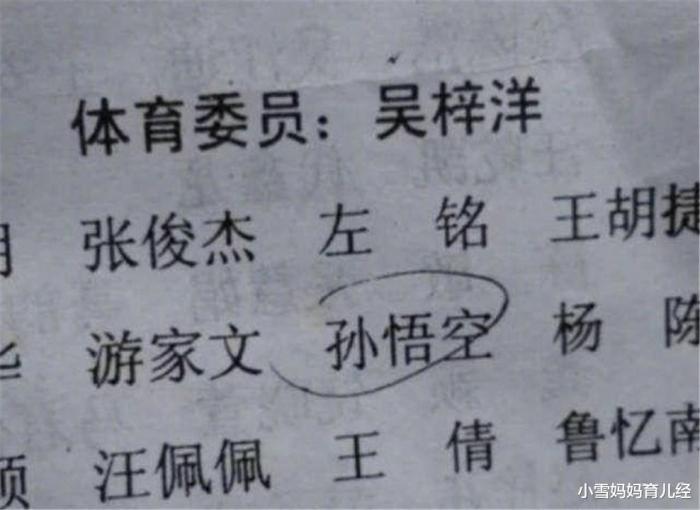 体育委员：吴梓洋
张俊杰 左 铭 王胡捷
游家文 孙悟空 杨 陈
汪佩佩 王 倩 鲁忆南
小雪妈妈育儿经